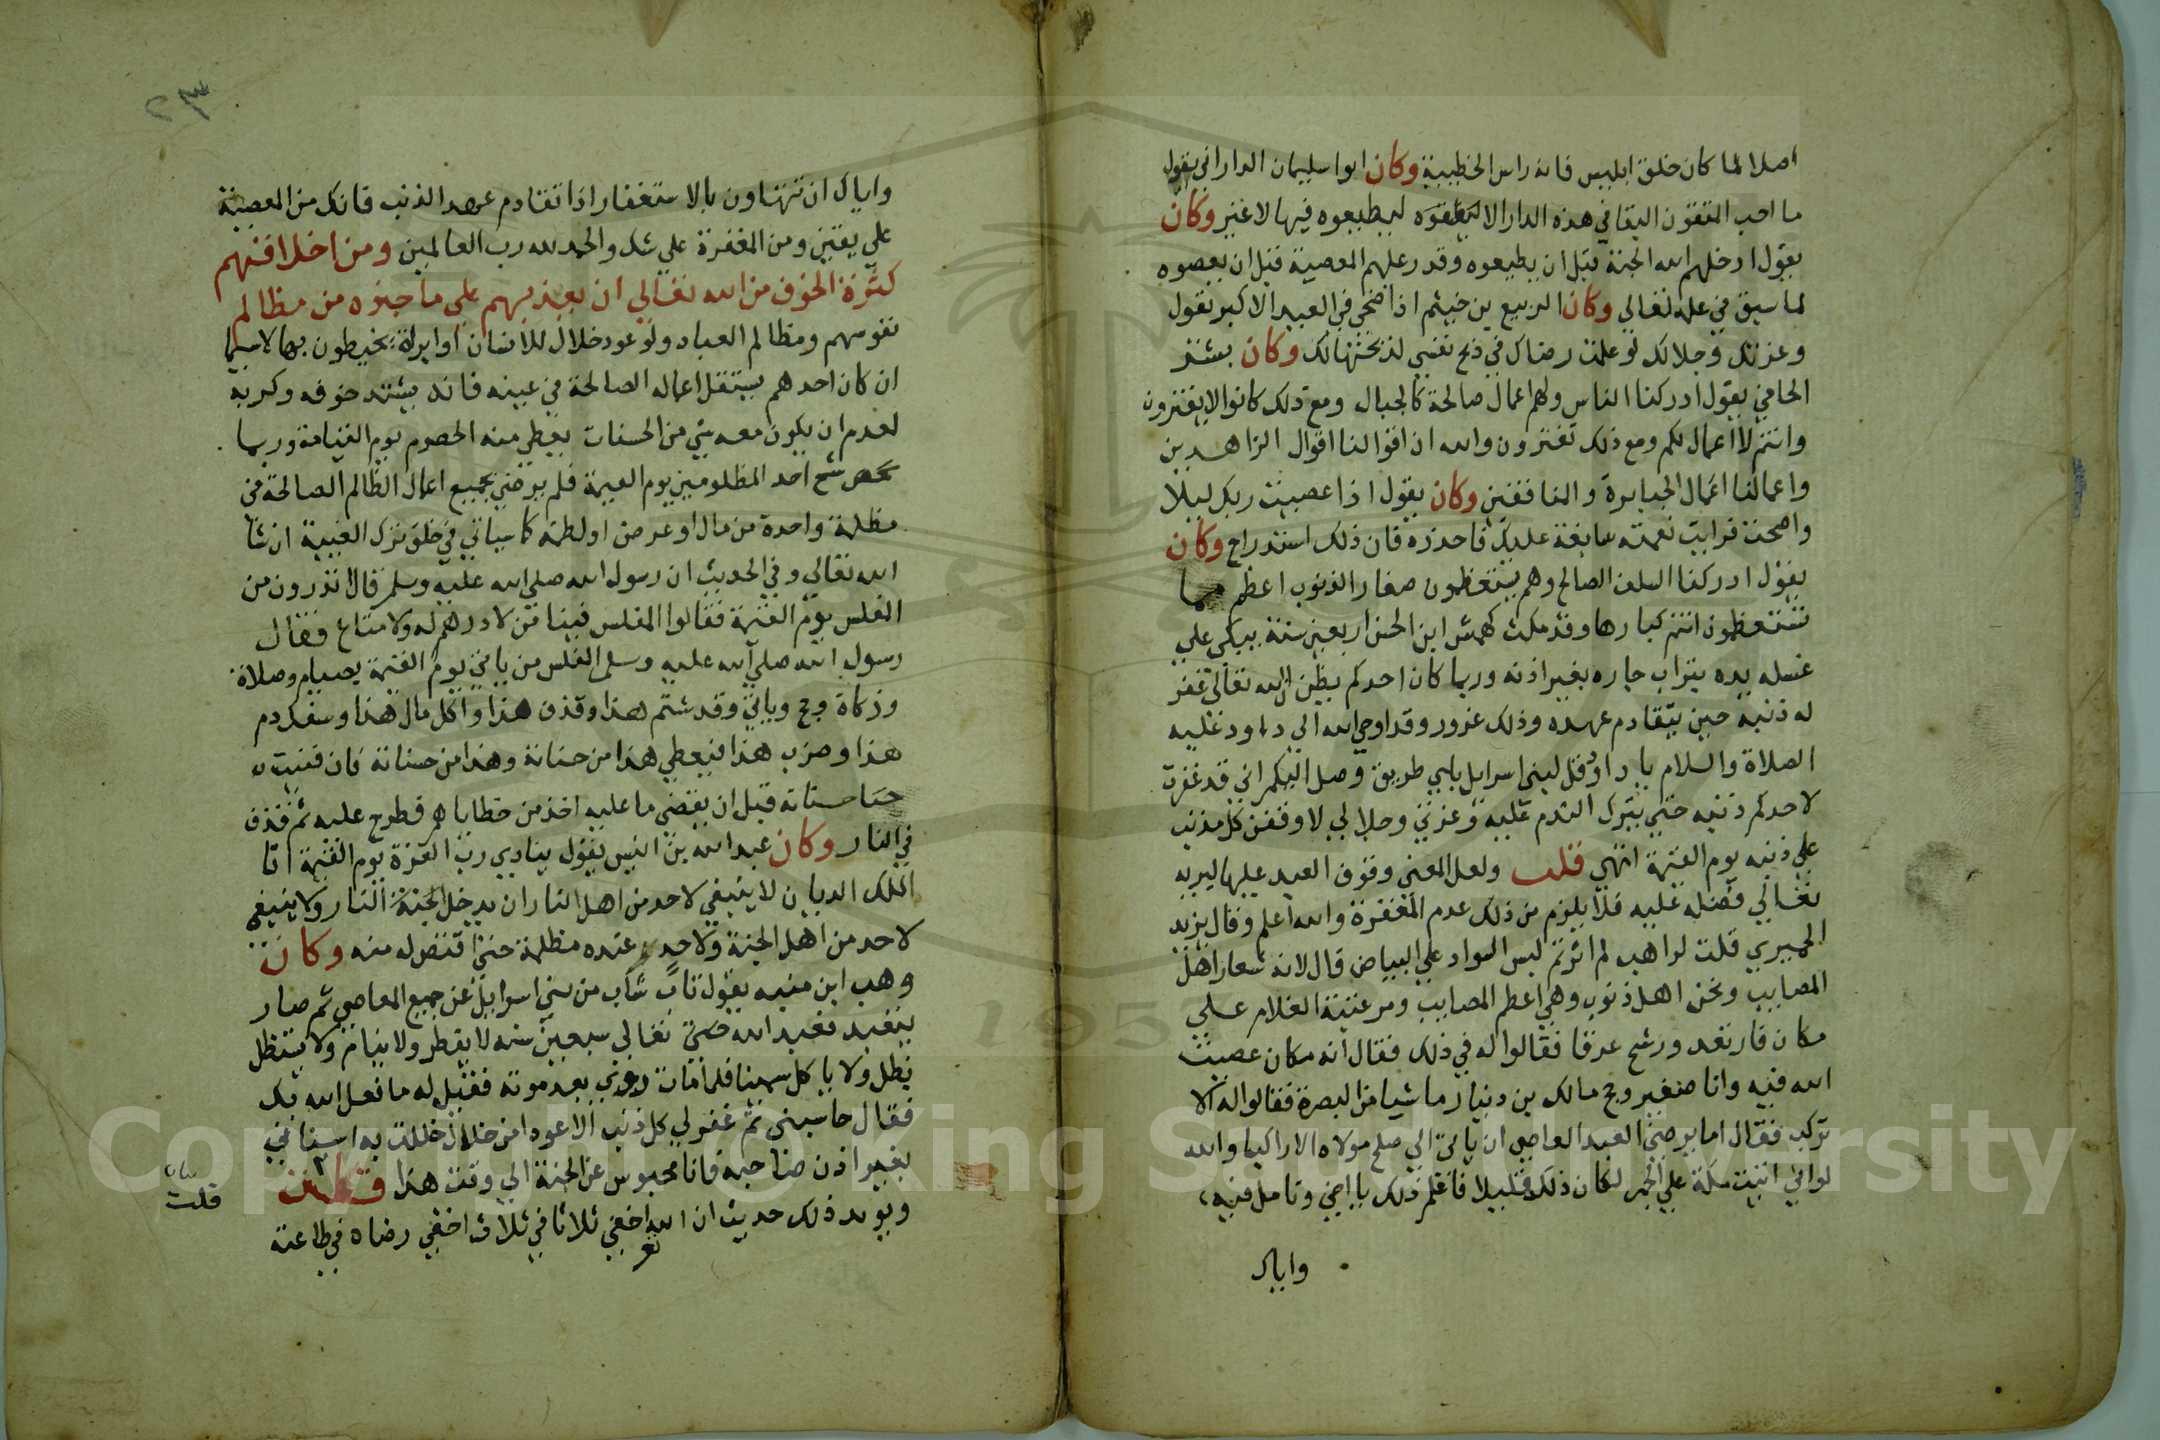 اصلا لما كان خلق ابليس فانه راس الخطيئة وكان ابوا سليمان الداراني يقول
ما احب المتقون البقا في هذه الدار الا ليطيعوه فيها لا غير وكان
يقول ادخلهم الله الجنة قبل ان يطيعوه وقدر عليهم المعصية قبل ان يعصوه
لما سبق في علمه تعالي وكان الربيع بن خيثم اذا ضحي في العيد الاكبر يقول
وعزتك وجلالك لو علمت رضاك في ذبح نفسي لذبحتها لك وكان بشر
الحافي يقول ادركنا الناس ولهم اعمال صالحة كالجبال ومع ذلك كانوا لا يغترون
وانتم لا اعمال لكم ومع ذلك تغترون والله ان اقوالنا اقوال الزاهدين
واعمالنا اعمال الجبابرة والمنافقين وكان يقول اذا عصيت ربك ليلا
واصحت فرايت نعمته سابغة عليك فاحذره فان ذلك استدراج وكان
يقول ادركنا السلف الصالح وهم يستعظمون صغار الذنوب اعظم مما
تستعظمون انتم كبارها وقد مكث كهمش ابن الحسن اربعين سنة يبكي علي
غسله يده بتراب جاره بغير اذنه وربما كان احدكم يظن ان الله تعالي غفر
له ذنبه حين يتقادم عهده وذلك غرور وقد اوحي الله الي داود عليه
الصلاة والسلام يا داود قل لبني اسرايل باي طريق وصل اليكم اني قد غفرت
لاحدكم ذنبه حتي يترك الندم عليه وعزتي وجلالي لاوقفن كل مذنب
علي ذنبه يوم القيمة انتهي قلت ولعل المعني وقوف العبد عليها ليريه
تعالي فضله عليه فلا يلزم من ذلك عدم المغفرة والله اعلم وقال يزيد
الحميري قلت لراهب لم اثرتم لبس السواد علي البياض قال لانه شعار اهل
المصايب ونحن اهل ذنوب وهي اعظم المصايب ومر عتبة الغلام علي
مكان فارتعد ورشح عرقا فقالوا له في ذلك فقال انه مكان عصيت
الله فيه وانا صغير وحج مالك بن دينار ماشيا من البصرة فقالوا له الا
تركب فقال اما يرضي العبد العاصي ان ياتي الي صلح مولاه الا راكبا والله
لو اني اتيت مكة علي الجمر لكان ذلك قليلا فاعلم ذلك يا اخي وتامل فيه
واياك
واياك ان تتهاون بالاستغفار اذا تقادم عهد الذنب فانك من المعصية
علي يقين ومن المغفرة علي شك والحمد لله رب العالمين ومن اخلاقهم
كثرة الخوف من الله تعالي ان يعذبهم علي ما جنوه من مظالم
نفوسهم ومظالم العباد ولو عود خلال للاسنان او ابرة يخيطون بها لاسيما
ان كان احدهم يستقل اعماله الصالحة في عينه فانه يشتد خوفه وكربه
لعدم ان يكون معه شي من الحسنات يعطي منه الخصوم يوم القيامة وربما
شح احد المظلومين يوم القيمة فلم يرضي بجميع اعمال الظالم الصالحة في
مظلمة واحدة من مال او عرض او لطمة كما سياتي في خلق ترك الغيبة ان شا
الله تعالي وفي الحديث ان رسول الله صلي الله عليه وسلم قال اتدرون من
المفلس يوم القيمة فقالوا المفلس فينا من لا درهم له ولا متاع فقال
رسول الله صلي الله عليه وسلم المفلس من ياتي يوم القيمة بصيام وصلاة
وزكاة وحج وياتي وقد شتم هذا وقذف هذا واكل مال هذا وسفك دم
هذا وضرب هذا فيعطي هذا من حسناته وهذا من حسناته فان فنيت
حسناته قبل ان يقضي ما عليه اخذ من خطاياهم فطرح عليه ثم قذف
في النار وكان عبد الله بن انيس يقول ينادي رب العزة يوم القيمة انا
الملك الديان لا ينبغي لاحد من اهل النار ان يدخل النار ولا ينبغي
لاحد من اهل الجنة ولاحد عنده مظلمة حتي اقتص له منه وكان
وهب ابن منبه يقول تاب شاب من بني اسرايل عن جميع المعاصي ثم صار
يتعبد تعبد الله تعالي سبعين سنه لا يفطر ولا ينام ولا يستظل
بظل ولا ياكل سمينا فلما مات روي بعد موته فقيل له ما فعل الله بك
فقال حاسبني ثم غفر لي كل ذنب الا عودا من خلال خللت به اسناني
بغير اذن صاحبه فانا محبوس عن الجنة الي وقت هذا قلت
ويويد ذلك حديث ان الله تع اخفي ثلاثا في ثلاث اخفي رضاه في طاعته
بيان
قلت
٢٣
Copyright © King Saud University
1957